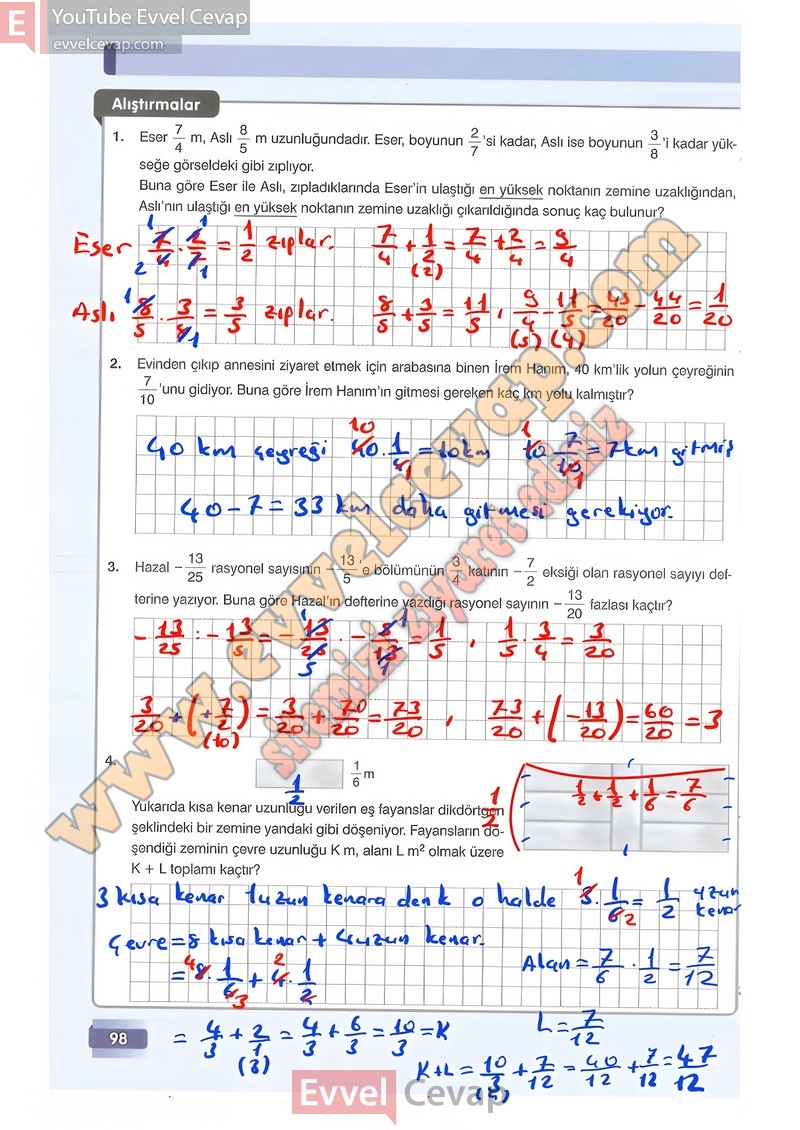 E YouTube Evvel Cevap
evvelcevap.com
Alıştırmalar
1. Eser 7/4 m, Aslı 8/5 m uzunluğundadır. Eser, boyunun 2/7 'si kadar, Aslı ise boyunun 3/8 'i kadar yük-
seğe görseldeki gibi zıplıyor.
Buna göre Eser ile Aslı, zıpladıklarında Eser'in ulaştığı en yüksek noktanın zemine uzaklığından,
Aslı'nın ulaştığı en yüksek noktanın zemine uzaklığı çıkarıldığında sonuç kaç bulunur?
Eser 7/4 . 2/7 = 1/2 zıplar. 7/4 + 1/2 = 7/4 + 2/4 = 9/4
(2)
Aslı 8/5 . 3/8 = 3/5 zıplar. 8/5 + 3/5 = 11/5 , 9/4 - 11/5 = 45/20 - 44/20 = 1/20
(5) (4)
2. Evinden çıkıp annesini ziyaret etmek için arabasına binen İrem Hanım, 40 km'lik yolun çeyreğinin
7/10 'unu gidiyor. Buna göre İrem Hanım'ın gitmesi gereken kaç km yolu kalmıştır?
40 km çeyreği 40 . 1/4 = 10km 10 . 7/10 = 7km gitmiş
40 - 7 = 33 km daha gitmesi gerekiyor.
3. Hazal - 13/25 rasyonel sayısının - 13/5 'e bölümünün 3/4 katının - 7/2 eksiği olan rasyonel sayıyı def-
terine yazıyor. Buna göre Hazal'ın defterine yazdığı rasyonel sayının - 13/20 fazlası kaçtır?
- 13/25 : - 13/5 = - 13/25 . - 5/13 = 1/5 , 1/5 . 3/4 = 3/20
3/20 + (+ 7/2) = 3/20 + 70/20 = 73/20 , 73/20 + (- 13/20) = 60/20 = 3
(10)
4. 1/6 m
1/2
1/2
1/2 + 1/2 + 1/6 = 7/6
Yukarıda kısa kenar uzunluğu verilen eş fayanslar dikdörtgen
şeklindeki bir zemine yandaki gibi döşeniyor. Fayansların dö-
şendiği zeminin çevre uzunluğu K m, alanı L m² olmak üzere
K + L toplamı kaçtır?
3 kısa kenar 1 uzun kenara denk o halde 3 . 1/6 = 1/2 uzun kenar
Çevre = 8 kısa kenar + 4 uzun kenar.
= 8 . 1/6 + 4 . 1/2
Alan = 7/6 . 1/2 = 7/12
= 4/3 + 2/1 = 4/3 + 6/3 = 10/3 = K
(3)
L = 7/12
K+L = 10/3 + 7/12 = 40/12 + 7/12 = 47/12
(4)
98
www.evvelcevap.com
sitemizi ziyaret ediniz
Evvel Cevap